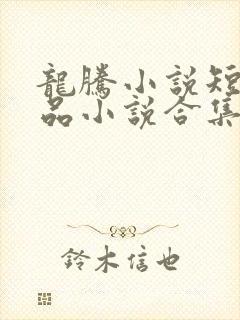 龍騰小說短
品小說合集
鈴木信也